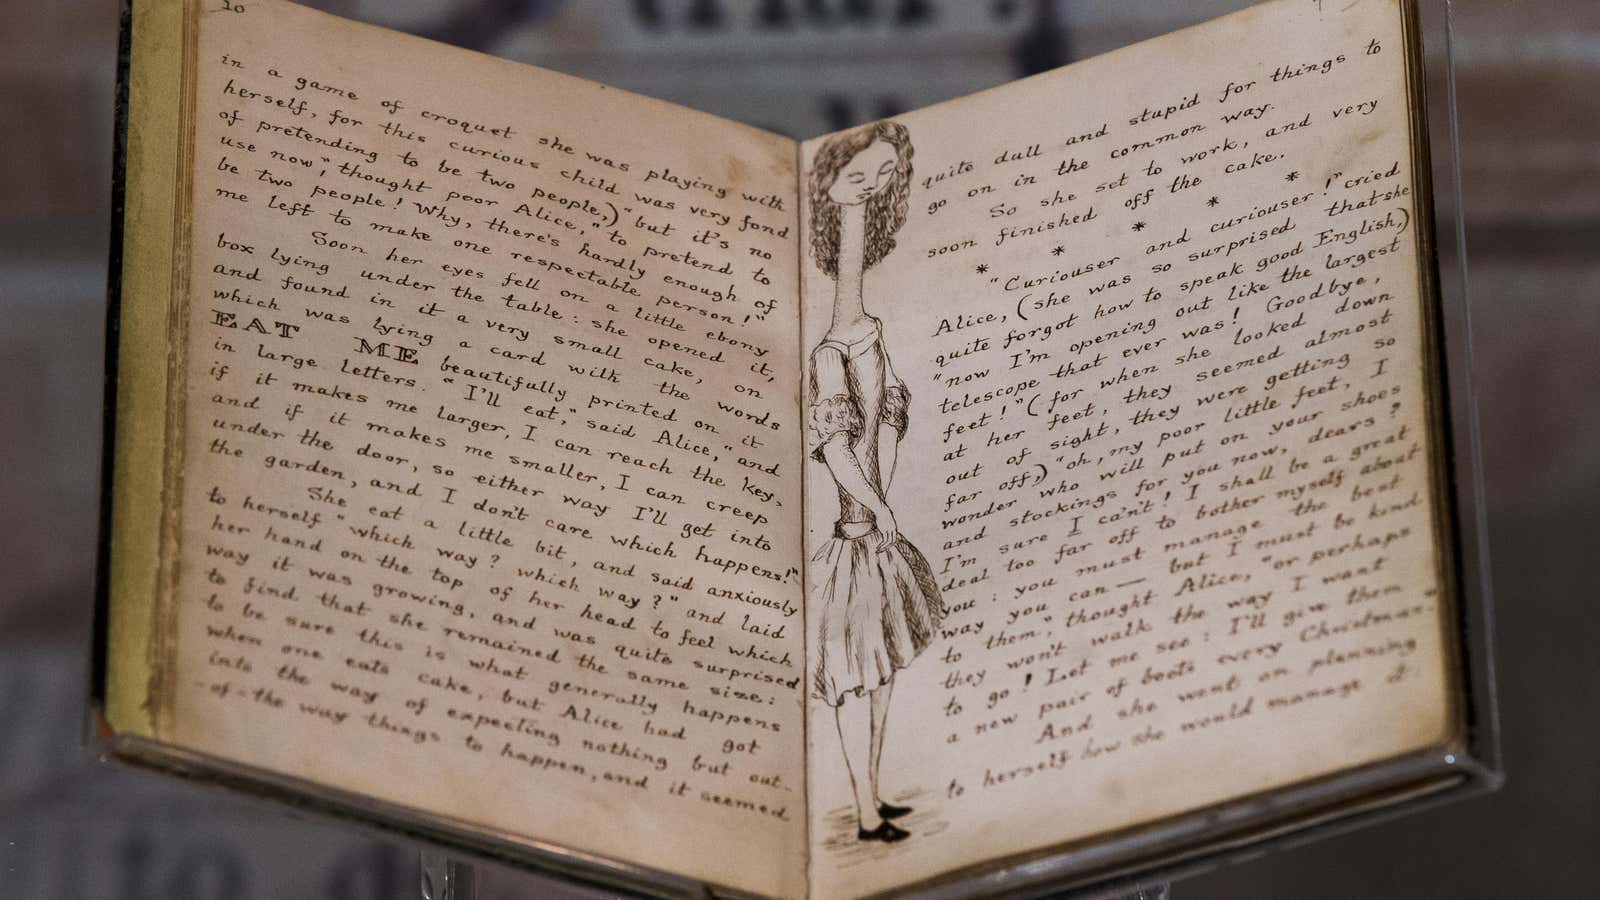 10
in a game of croquet she was playing with
herself, for this curious child was very fond
of pretending to be two people,) "but it's no
use now", thought poor Alice, "to pretend to
be two people! Why, there's hardly enough of
me left to make one respectable person!"
Soon her eyes fell on a little ebony
box lying under the table: she opened it,
and found in it a very small cake, on
which was lying a card with the words
EAT ME beautifully printed on it
in large letters. "I'll eat," said Alice, "and
if it makes me larger, I can reach the key,
and if it makes me smaller, I can creep
under the door, so either way I'll get into
the garden, and I don't care which happens!"
She eat a little bit, and said anxiously
to herself "which way? which way?" and laid
her hand on the top of her head to feel which
way it was growing, and was quite surprised
to find that she remained the same size:
to be sure this is what generally happens
when one eats cake, but Alice had got
into the way of expecting nothing but out-
-of-the way things to happen, and it seemed
quite dull and stupid for things to
go on in the common way.
So she set to work, and very
soon finished off the cake.
* * * * *
"Curiouser and curiouser!" cried
Alice, (she was so surprised that she
quite forgot how to speak good English,)
"now I'm opening out like the largest
telescope that ever was! Goodbye,
feet!" (for when she looked down
at her feet, they seemed almost
out of sight, they were getting so
far off,) "oh, my poor little feet, I
wonder who will put on your shoes
and stockings for you now, dears?
I'm sure I can't! I shall be a great
deal too far off to bother myself about
you: you must manage the best
way you can — but I must be kind
to them", thought Alice, "or perhaps
they won't walk the way I want
to go! Let me see: I'll give them
a new pair of boots every Christmas."
And she went on planning
to herself how she would manage it: